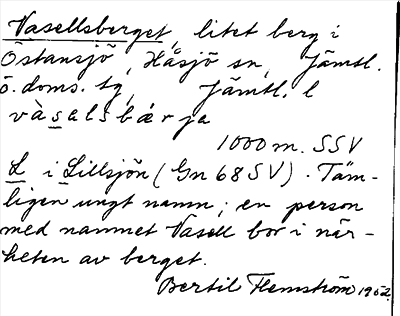 Vasellsberget, litet berg i
Östansjö, Håsjö sn, Jämtl.
ö. doms. tg, Jämtl. l
vàsalsbærja
1000 m. SSV
L i Lillsjön (Gn 68 SV). Täm-
ligen ungt namn; en person
med namnet Vasell bor i när-
heten av berget.
Bertil Flemström 1962